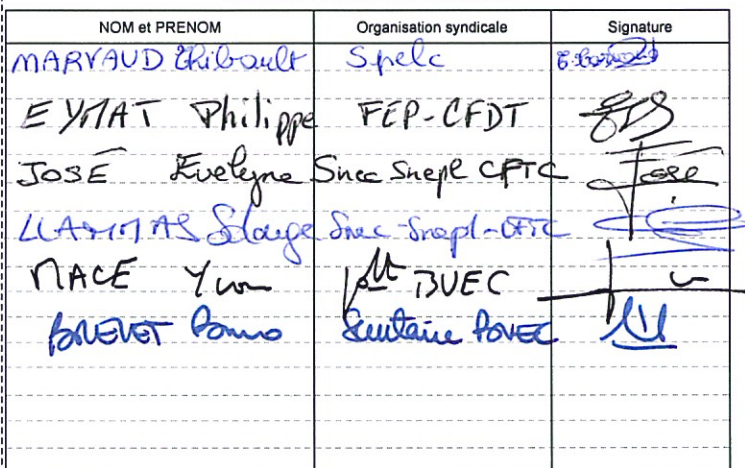 NOM et PRENOM Organisation syndicale Signature
MARVAUD Thibault Spelc
EYMAT Philippe FEP-CFDT
JOSÉ Evelyne Snec Snepl CFTC José
LLAMMAS Solange Snec-Snepl-CFTC
MACE Yvon BUEC
BREVET